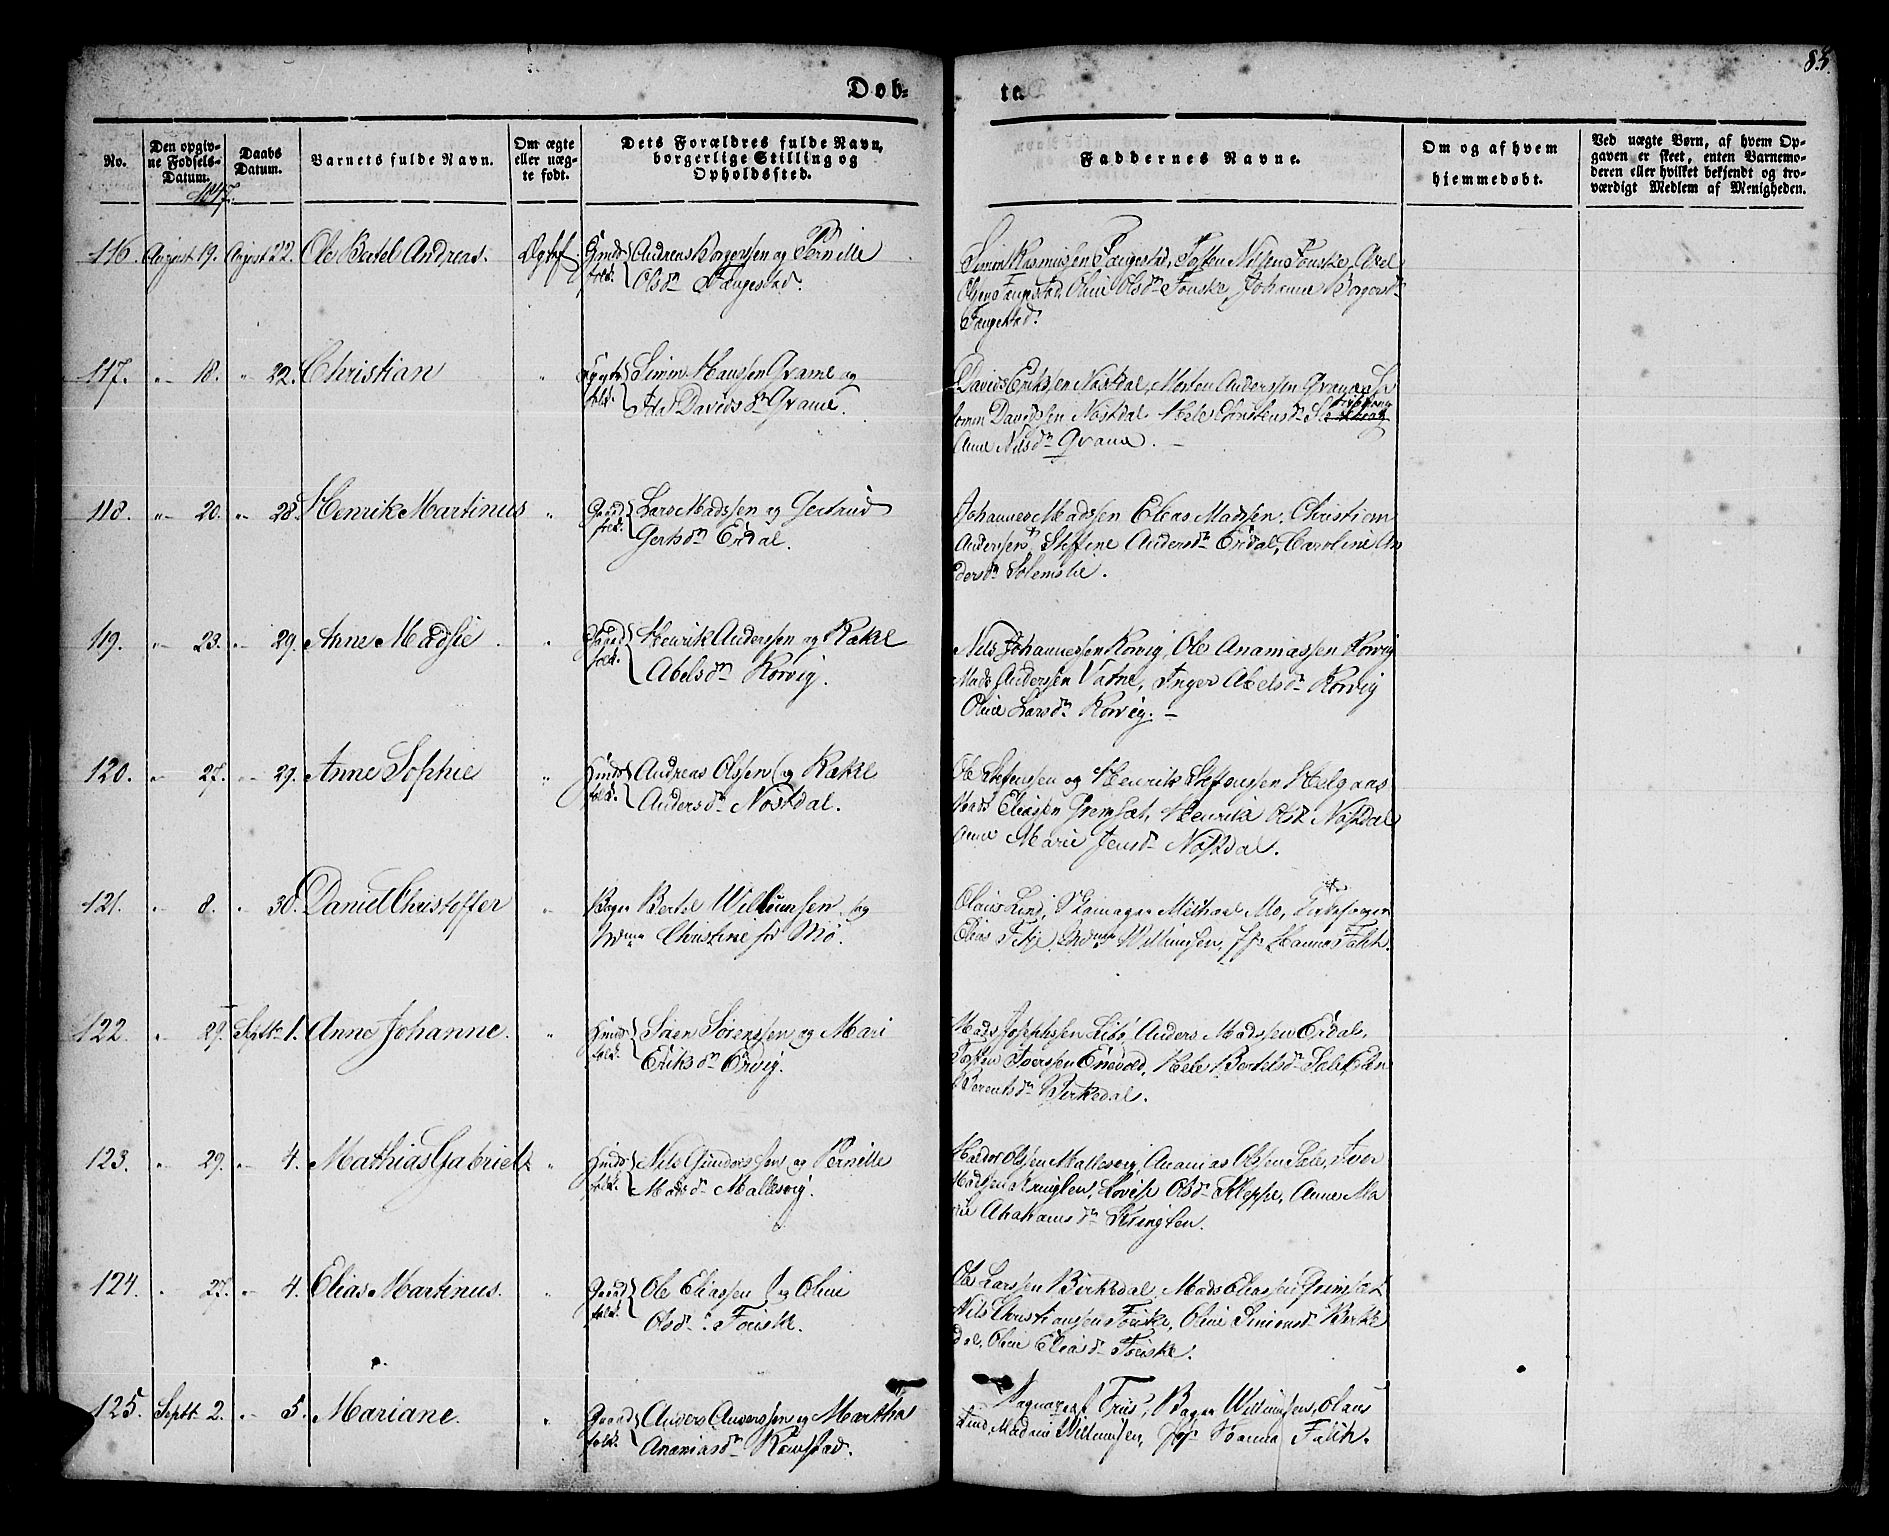 83.
Døb=
te.
No.
Den opgiv-
ne Fødsels-
Datum.
1847.
Daabs
Datum.
Barnets fulde Navn.
Om ægte
eller uæg-
te født.
Dets Forældres fulde Navn,
borgerlige Stilling og
Opholdssted.
Faddernes Navne.
Om og af hvem
hjemmedøbt.
Ved uægte Børn, af hvem Op-
gaven er skeet, enten Barnemo-
deren eller hvilket bekjendt og tro-
værdigt Medlem af Menigheden.
116. August 19. August 22. Ole Bertel Andreas. Ægtef. Huusf Andreas Borgersen og Pernille
folk. Olsdr Tangestad.
Simon Rasmussen Tangestad, Torsten Nilsen Fonske, Axel
Olsen Tangestad, Oline Olsdr Fonske, Johanne Borgersdr
Tangestad.
117. " 18. " 22. Christian " Simon Hansen Qvame og
folk. Davidsdr Qvame.
David Eriksen Nøstdal, Morten Anderssen Qvame, Si
mon Davidssen Nøstdal
Anne Nilsdr Qvame. —
118. " 20. " 28. Henrik Martinus " Gaard Lars Madssen og Gertrud
folk. Gertsdr Erdal.
Johannes Madssen Elias Madssen, Christian
Anderssen, Steffine Andersdr Erdal, Caroline An
dersdr Solemslie.
119. " 23. " 29. Anne Madsie " Gaard Henrik Anderssen og Rakel
folk. Abelsdr Korvig.
Nils Johannessen Korvig, Ole Ananiassen Korvig
Mads Andersen Vatne, Inger Abelsdr Korvig
Oline Larsdr Korvig. —
120. " 27. " 29. Anne Sophie " Huus Andreas Olssen og Rakel
folk. Andersdr Nøstdal.
Ole Steffenssen og Henrik Steffenssen Helgaas
Mads Eliasen Grimset, Henrik Olss Nøstdal
Anne Marie Jensdr Nøstdal.
121. " 8. " 30. Daniel Christoffer " Bager Bertel Willumsen og
Christine Mo.
Olaus Lind, Skomager Michael Mo,
Elias Willumsen, Hanna Falch.
122. " 29. Septbr 1. Anne Johanne. " Huus Søren Sørenssen og Mari
folk. Eriksdr Ervig.
Mads Josephssen Libø, Anders Madssen Erdal,
Torsten Iverssen Enevold, Bertelsdr
Berentsdr Birkedal.
123. " 29. " 4. Mathias Gabriel " Huus Nils Gunderssen og Pernille
folk. Madsdr Mallesvig.
Haldor Olssen Mallesvig, Ananias Olssen Sele, Iver
Madssen Kringlen, Lovise Olsdr Kleppe, Anne Ma
rie Abrahamsdr Kringlen.
124. " 27. " 4. Elias Martinus. " Gaard Ole Eliassen og Oline
folk. Olsdr Fonske.
Ole Larssen Birkedal, Mads Eliassen Grimset
Nils Christianssen Fonske, Oline Simonsdr Birke
dal, Oline Eliasdr Fonske.
125. Septbr 2. " 5. Mariane. " Gaard Anders Anderssen og Martha
folk. Ananiasdr Ramstad.
Friis, Bager Willumsen, Olaus
Lind, Madame Willumsen, Hanna Falch.